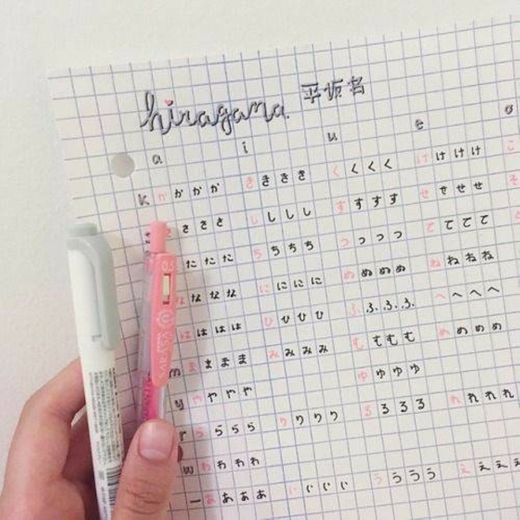 hiragana 平仮名
a i u e o
k か か か か き き き き く く く く け け け け こ
さ さ さ さ し し し し す す す す せ せ せ せ そ
た た た ち ち ち ち つ つ つ つ て て て て
な な な な に に に に ぬ ぬ ぬ ぬ ね ね ね ね
は は は は ひ ひ ひ ひ ふ ふ ふ ふ へ へ へ へ
m ま ま ま み み み み む む む む め め め め
y や や や や ゆ ゆ ゆ ゆ
r ら ら ら ら り り り り る る る る れ れ れ れ
w わ わ わ わ
- あ あ あ あ い い い い う う う う え え え え
0.5